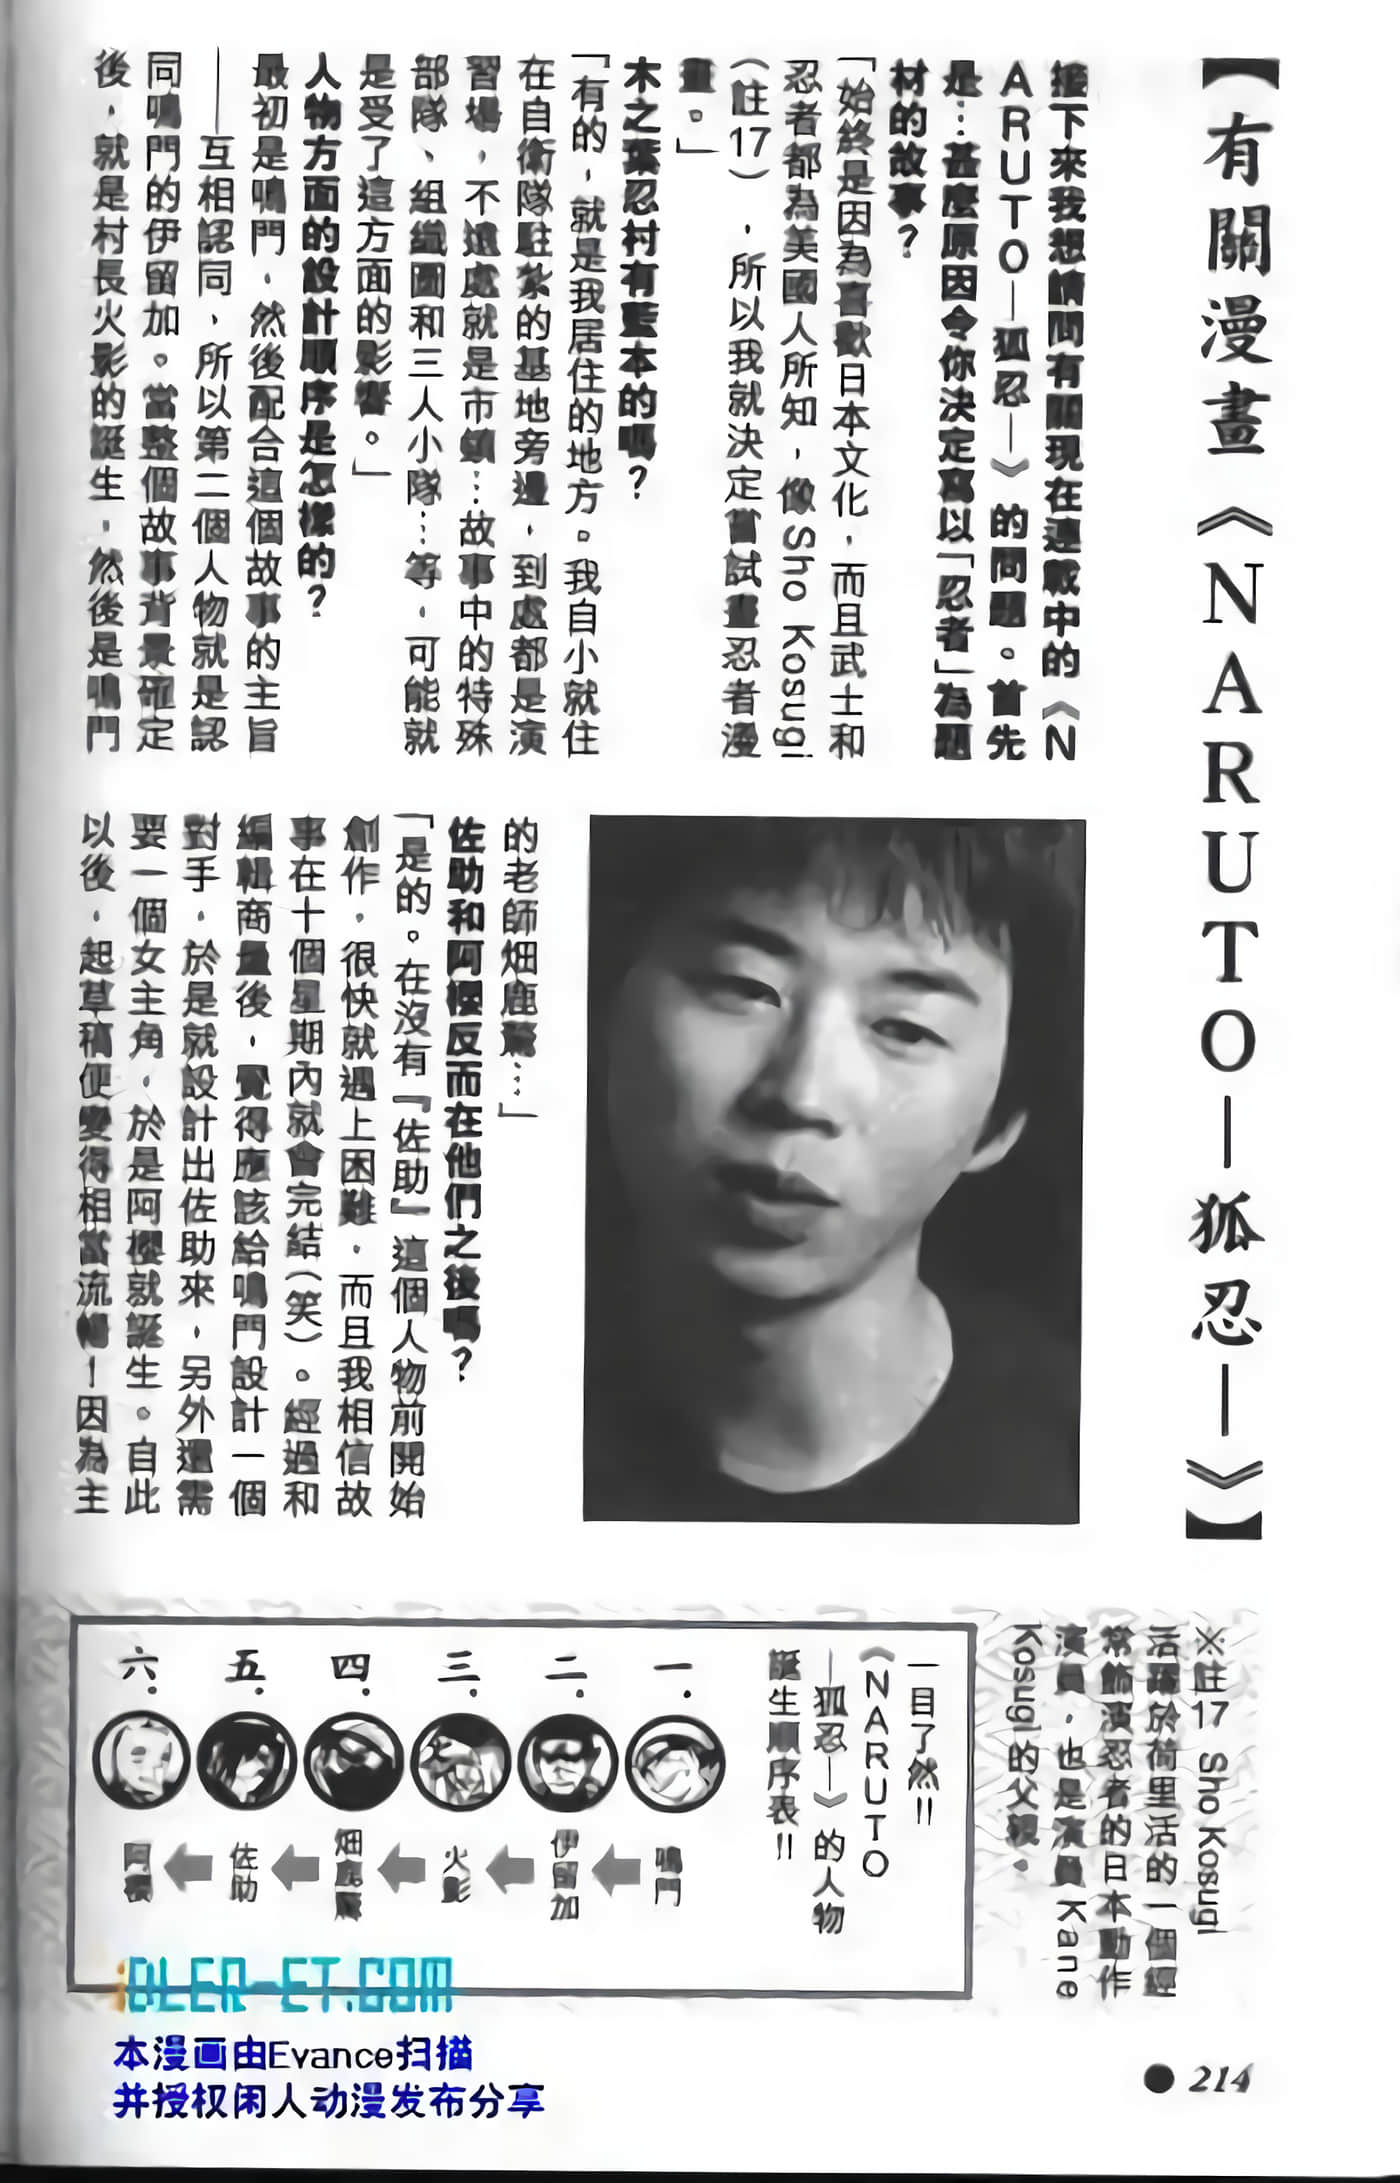 【有關漫畫《NARUTO—狐忍—》】
接下來我想請問有關現在連載中的《N
ARUTO—狐忍—》的問題。首先
是…甚麼原因令你決定寫以「忍者」為題
材的故事？
「始終是因為喜歡日本文化，而且武士和
忍者都為美國人所知，像Sho Kosugi
（註17），所以我就決定嘗試畫忍者漫
畫。」
木之葉忍村有藍本的嗎？
「有的，就是我居住的地方。我自小就住
在自衛隊駐紮的基地旁邊，到處都是演
習場，不遠處就是市鎮…故事中的特殊
部隊、組織圖和三人小隊…等，可能就
是受了這方面的影響。」
人物方面的設計順序是怎樣的？
最初是鳴門，然後配合這個故事的主旨
——互相認同，所以第二個人物就是認
同鳴門的伊留加。當整個故事背景確定
後，就是村長火影的誕生，然後是鳴門
的老師畑鹿驚…」
佐助和阿櫻反而在他們之後嗎？
「是的。在沒有『佐助』這個人物前開始
創作，很快就遇上困難，而且我相信故
事在十個星期內就會完結（笑）。經過和
編輯商量後，覺得應該給鳴門設計一個
對手，於是就設計出佐助來，另外還需
要一個女主角，於是阿櫻就誕生。自此
以後，起草稿便變得相當流暢！因為主
※註17 Sho Kosugi
活躍於荷里活的一個經
常飾演忍者的日本動作
演員，也是演員Kane
Kosugi的父親。
一目了然!!
《NARUTO
—狐忍—》的人物
誕生順序表!!
一．鳴門
二．伊留加
三．火影
四．畑鹿驚
五．佐助
六．阿櫻
iDLER-ET.COM
本漫画由Evance扫描
并授权闲人动漫发布分享
●214